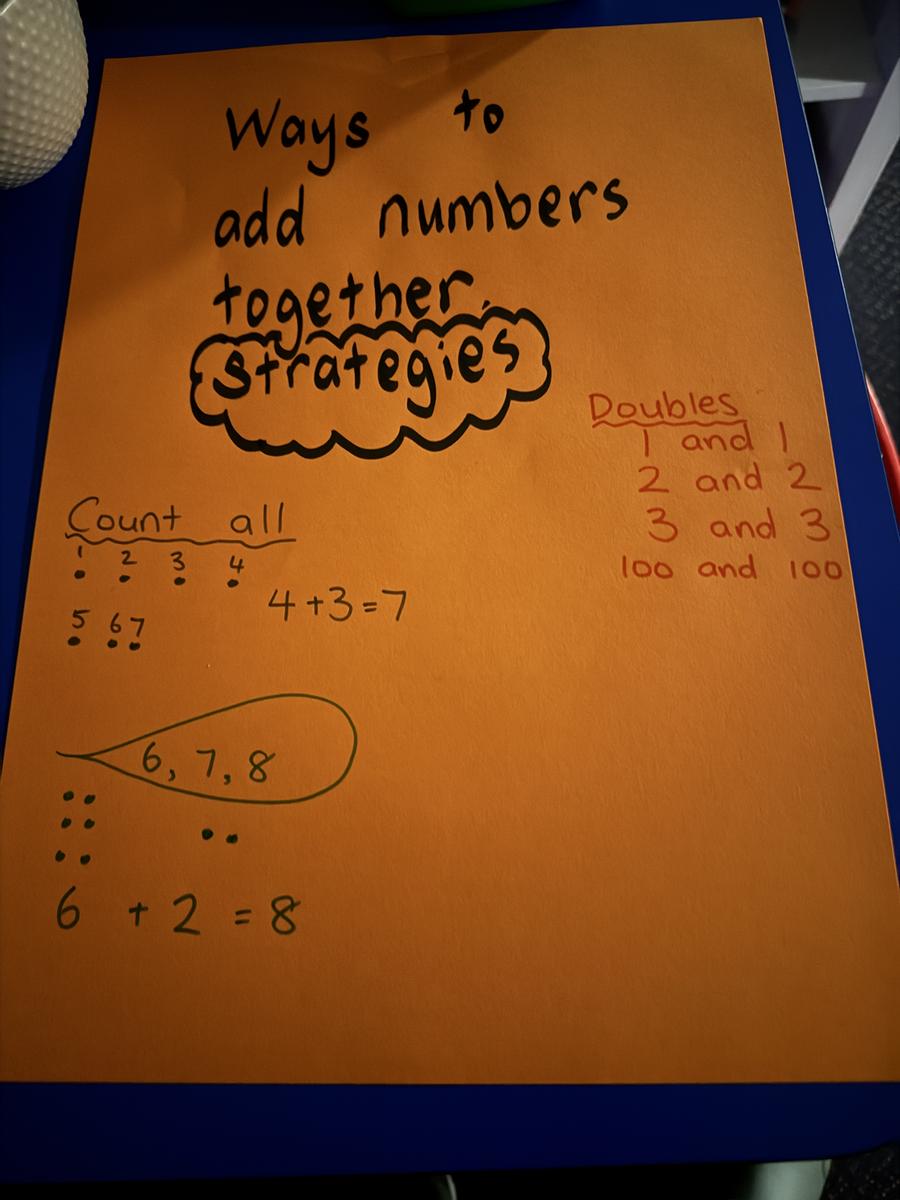 Ways to
add numbers
together.
Strategies
Doubles
1 and 1
2 and 2
3 and 3
100 and 100
Count all
1 2 3 4
5 6 7
4+3=7
6, 7, 8
6 + 2 = 8